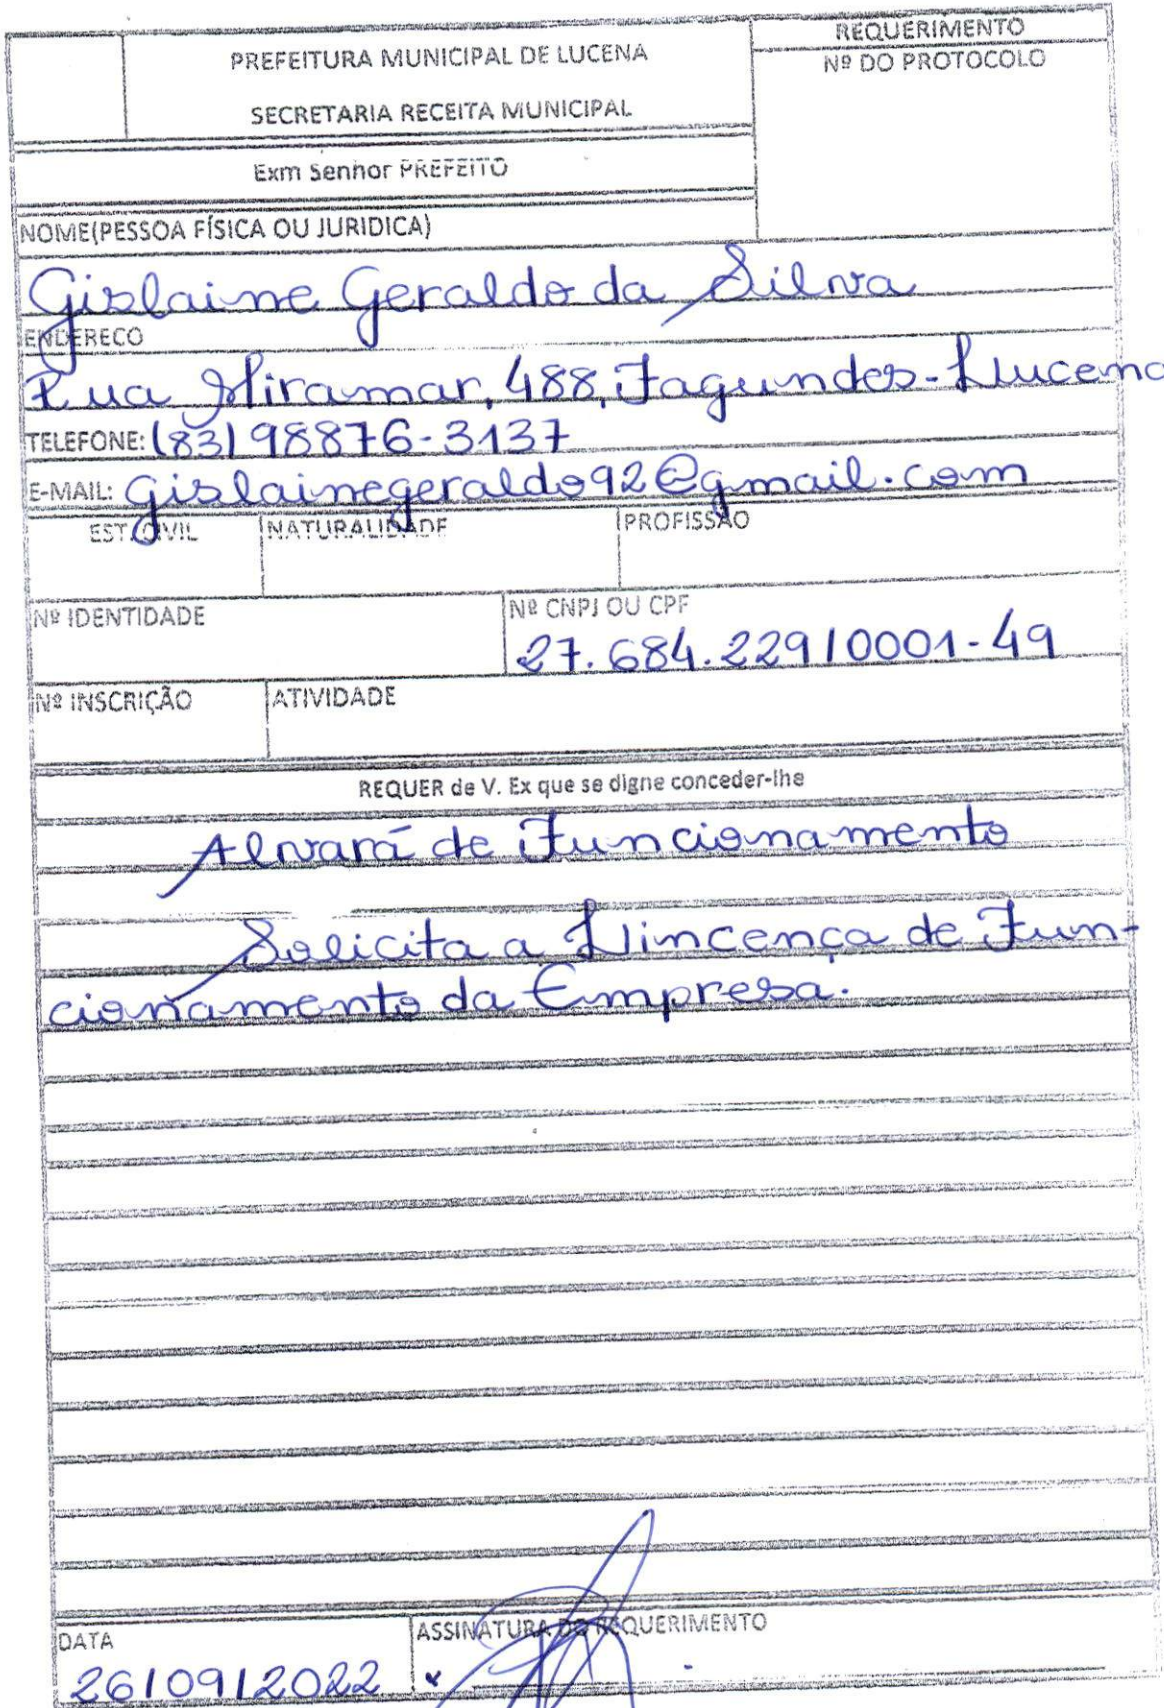 REQUERIMENTO
PREFEITURA MUNICIPAL DE LUCENA
Nº DO PROTOCOLO
SECRETARIA RECEITA MUNICIPAL
Exm Senhor PREFEITO
NOME(PESSOA FÍSICA OU JURIDICA)
Gislaine Geraldo da Silva
ENDERECO
Rua Miramar, 488, Fagundes - Lucena
TELEFONE: (83) 98876-3137
E-MAIL: Gislainegeraldo92@gmail.com
EST. CIVIL NATURALIDADE PROFISSÃO
Nº IDENTIDADE Nº CNPJ OU CPF
27.684.229/0001-49
Nº INSCRIÇÃO ATIVIDADE
REQUER de V. Ex que se digne conceder-lhe
Alvará de Funcionamento
Solicita a Lincença de Fun-
cionamento da Empresa.
DATA ASSINATURA DO REQUERIMENTO
26/09/2022 x